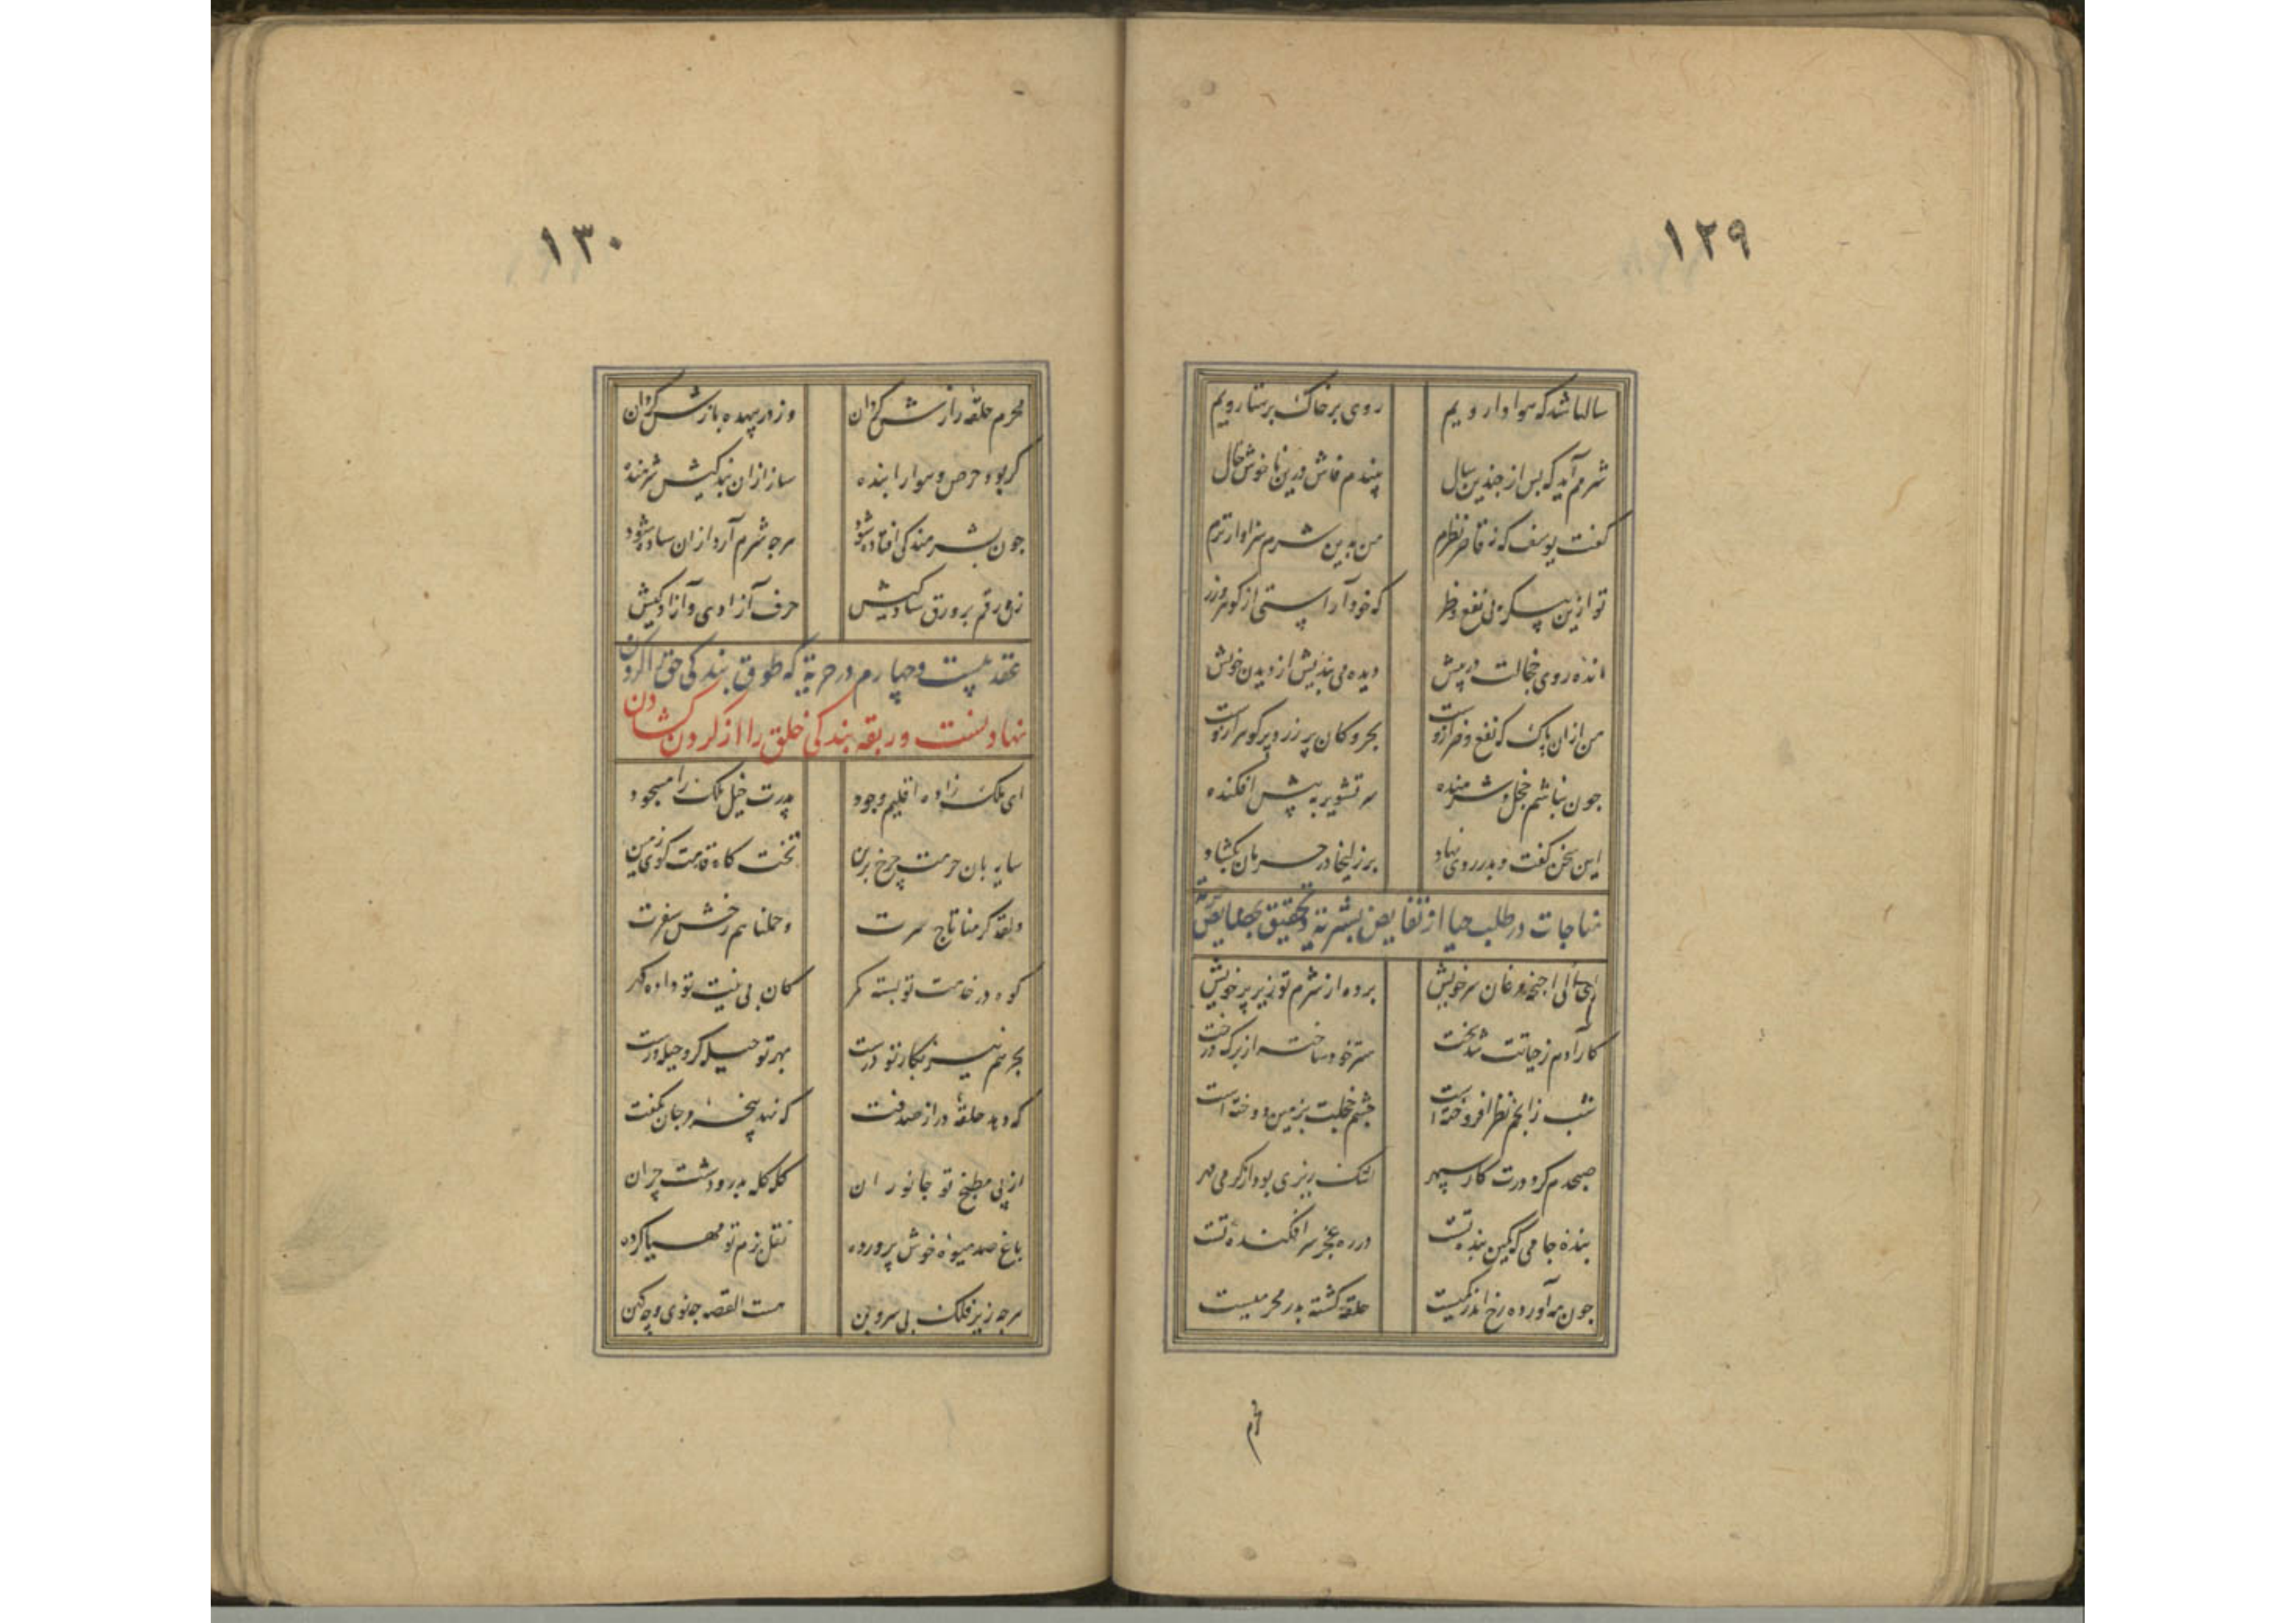 ۱۲۹
سالها شد که هوادار ویم روی بر خاک پرستار ویم
شرمم آید که پس از چندین سال بیندم فاش درین ناخوش حال
گفت یوسف که نه قاصر نظرم من بدین شرم سزاوارترم
تو ازین پیکر بی نفع و ضرر که خود آراستی از گوهر و زر
مانده روی خجالت در پیش دیده می بندیش از دیدن خویش
من ازان پاک که نفع و ضر ازوست بحر و کان پر زر و پر گوهر ازوست
چون نباشم خجل و شرمنده سر تشویر به پیش افکنده
این سخن گفت و بدر روی نهاد بر زلیخا در حرمان بگشاد
مناجات در طلب حیا از نقایص بشریة و تحقیق بخصایص
ای ملائک اجنحه مرغان سر خویش برده از شرم تو زیر پر خویش
کار آدم ز حیاتت شد سخت ستر خود ساخته از برگ درخت
شب ز انجم نظر افروخته است چشم خجلت بزمین دوخته است
صبحدم کرد درت کار سپهر اشک ریزی بود از گرمی مهر
بنده جامی که کمین بنده تست در ره عجز سرافکنده تست
چون مه آورده رخ اندر کمیست حلقه گشته بدر محرمیست
۱۳۰
محرم حلقه رازش گردان وز در بیهده بازش گردان
گر بود حرص و هوا را بنده ساز ازان بندگیش شرمنده
چون بشرمندگی افتاده شود هر چه شرم آرد ازان ساده شود
زن رقم بر ورق سادگیش حرف آزادی و آزادگیش
عقد بیست و چهارم در حریة که طوق بندگی حق را گردن
نهادنست و ربقه بندگی خلق را از گردن گشادن
ای ملک زاده اقلیم وجود پدرت خیل ملک را مسجود
سایه بان حرمت چرخ برین تخت گاه قدمت گوی زمین
ولقد کرمنا تاج سرت وحملناهم رخش سفرت
کوه در خدمت تو بسته کمر کان بی منیت تو داده گهر
بحر هم نیز بکار تو درست بهر تو حیله گر و حیله ورست
که دهد حلقه در از صدفت که نهد پنجه مرجان بکفت
از پی مطبخ تو جانوران گله گله بدر و دشت چران
باغ صد میوه خوش پرورده نقل بزم تو مهیا کرده
هر چه زیر فلک بی سر و بن هست القصه چه نو وی چه کهن